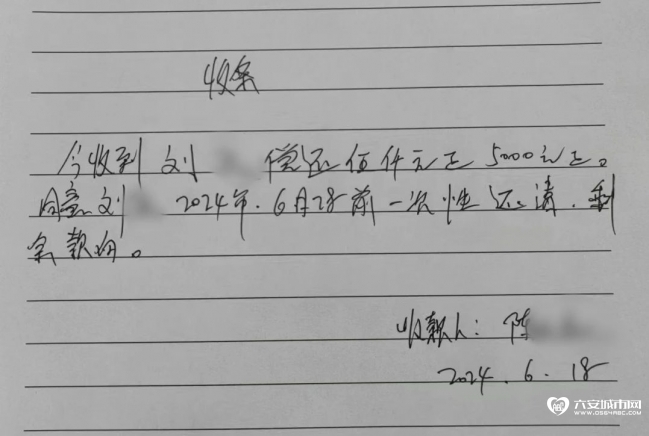 收条
今收到 刘 偿还伍仟元正 5000元正。
同意刘 2024年.6月28前一次性还清.剩
余款项。
收款人: 陈
2024.6.18
六安城市网
WWW.0564ABC.COM